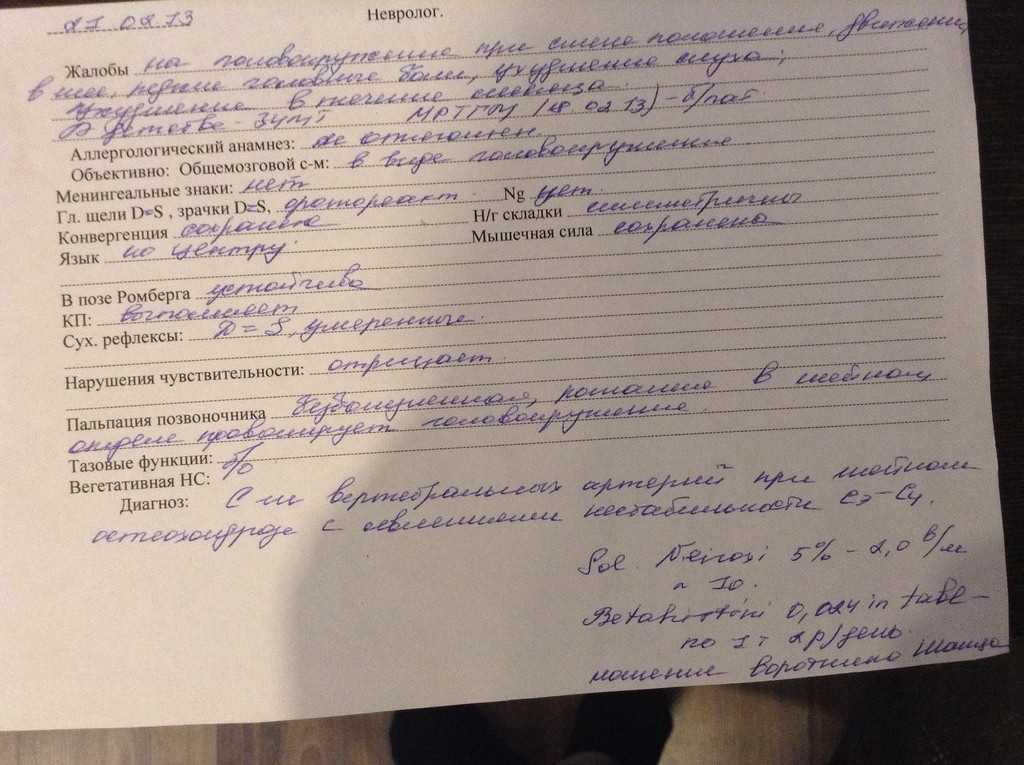 21 02 13 Невролог.
Жалобы на головокружение при смене положения, движении
в шее, редкие головные боли, ухудшение слуха;
Ухудшение в течение месяца.
С детства - ЗЧМТ МРТГМ (18 02 13) - б/пат.
Аллергологический анамнез: не отягощен.
Объективно: Общемозговой с-м: в виде головокружения
Менингеальные знаки: нет
Гл. щели D=S , зрачки D=S, фотореакт. Ng нет.
Конвергенция сохранена Н/г складки симметричны
Язык по центру. Мышечная сила сохранена
В позе Ромберга устойчива
КП: выполняет
Сух. рефлексы: D = S, умеренные.
Нарушения чувствительности: отрицает
Пальпация позвоночника безболезненная, ротация в шейном
отделе провоцирует головокружение.
Тазовые функции: б/о
Вегетативная НС:
Диагноз: С-м вертебральных артерий при шейном
остеохондрозе с явлениями нестабильности C3-C4.
Sol. Neiroxi 5% - 2,0 в/м
n 10.
Betahistini 0,024 in tabl -
по 1т 2р/день.
ношение воротника Шанца